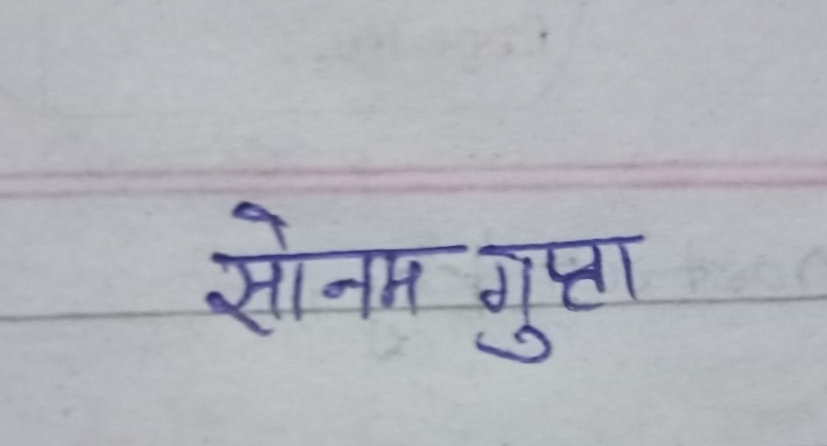 सोनम गुप्ता